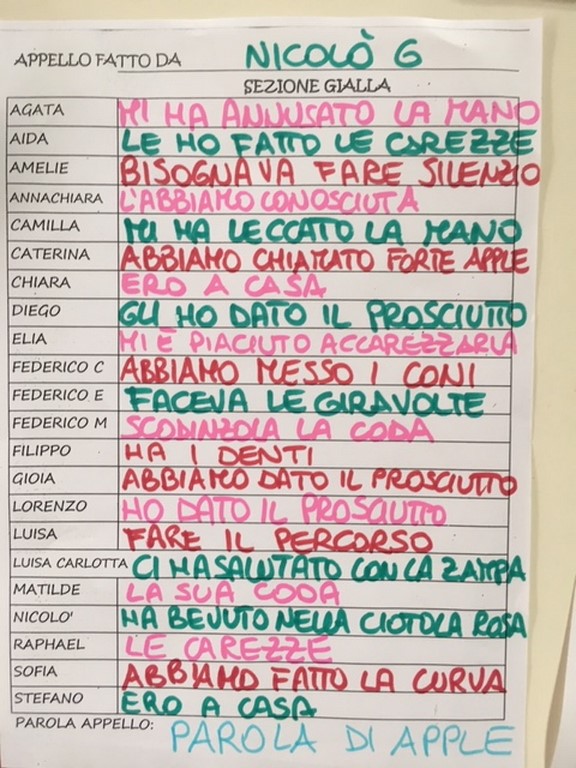 APPELLO FATTO DA NICOLÒ G
SEZIONE GIALLA
AGATA MI HA ANNUSATO LA MANO
AIDA LE HO FATTO LE CAREZZE
AMELIE BISOGNAVA FARE SILENZIO
ANNACHIARA L'ABBIAMO CONOSCIUTA
CAMILLA MI HA LECCATO LA MANO
CATERINA ABBIAMO CHIAMATO FORTE APPLE
CHIARA ERO A CASA
DIEGO GLI HO DATO IL PROSCIUTTO
ELIA MI È PIACIUTO ACCAREZZARLA
FEDERICO C ABBIAMO MESSO I CONI
FEDERICO E FACEVA LE GIRAVOLTE
FEDERICO M SCODINZOLA LA CODA
FILIPPO HA I DENTI
GIOIA ABBIAMO DATO IL PROSCIUTTO
LORENZO HO DATO IL PROSCIUTTO
LUISA FARE IL PERCORSO
LUISA CARLOTTA CI HA SALUTATO CON LA ZAMPA
MATILDE LA SUA CODA
NICOLO' HA BEVUTO NELLA CIOTOLA ROSA
RAPHAEL LE CAREZZE
SOFIA ABBIAMO FATTO LA CURVA
STEFANO ERO A CASA
PAROLA APPELLO: PAROLA DI APPLE